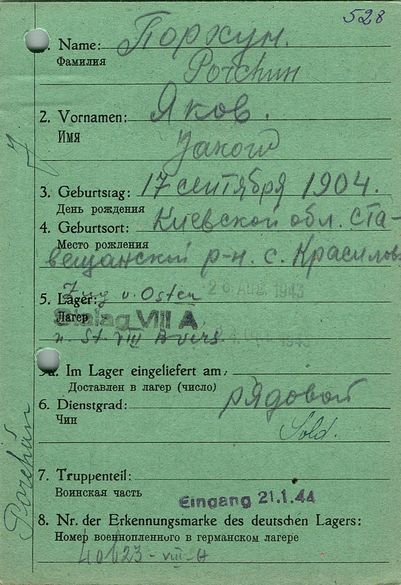 528
1. Name: Порхун.
Фамилия
Porchun
2. Vornamen: Яков.
Имя
Jakow
3. Geburtstag: 17 сентября 1904.
День рождения
4. Geburtsort: Киевской обл. Ста-
Место рождения
вещанский р-н. с. Красилов
5. Lager: Zug v. Osten 20 AUG. 1943
Лагер
Stalag VIII A
n. St. VIII B vers. 1943
5a. Im Lager eingeliefert am:
Доставлен в лагер (число)
6. Dienstgrad: рядовой
Чин
Sold.
7. Truppenteil:
Воинская часть
Eingang 21.1.44
8. Nr. der Erkennungsmarke des deutschen Lagers:
Номер военнопленного в германском лагере
40123-VIII-A
Porchun